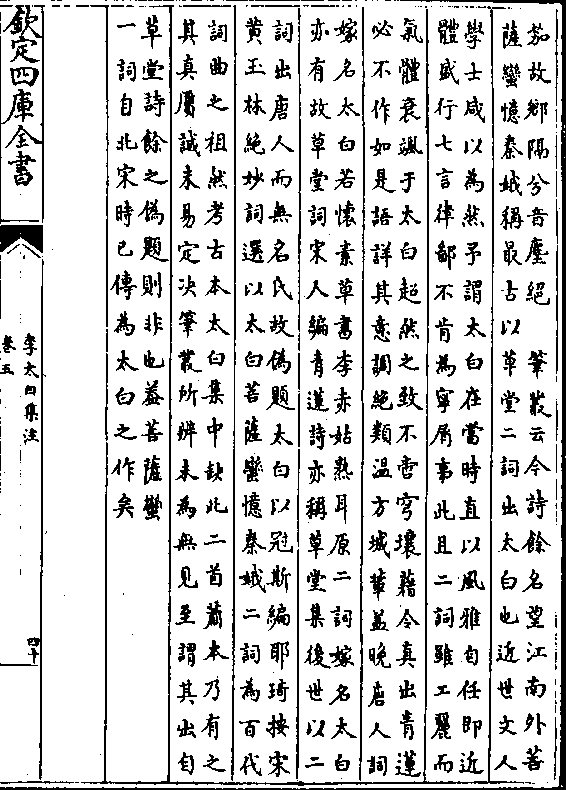 茄故鄉隔兮音塵絶　筆叢云今詩餘名望江南外菩
薩蠻憶秦娥稱最古以草堂二詞出太白也近世文人
學士咸以為然予謂太白在當時直以風雅自任即近
體盛行七言律鄙不肯為寧屑事此且二詞雖工麗而
氣體衰颯于太白超然之致不啻穹壤藉令真出青蓮
必不作如是語詳其意調絶類温方城輩葢晚唐人詞
嫁名太白若懷素草書李赤姑熟耳原二詞嫁名太白
亦有故草堂詞宋人編青蓮詩亦稱草堂集後世以二
詞出唐人而無名氏故偽題太白以冠斯編耶琦按宋
黄玉林絶妙詞選以太白菩薩蠻憶秦娥二詞為百代
詞曲之祖然考古本太白集中缺此二首蕭本乃有之
其真贋誠未易定決筆叢所辨未為無見至謂其出自
草堂詩餘之偽題則非也葢菩薩蠻
一詞自北宋時已傳為太白之作矣
欽定四庫全書
李太白集注
卷五
四十